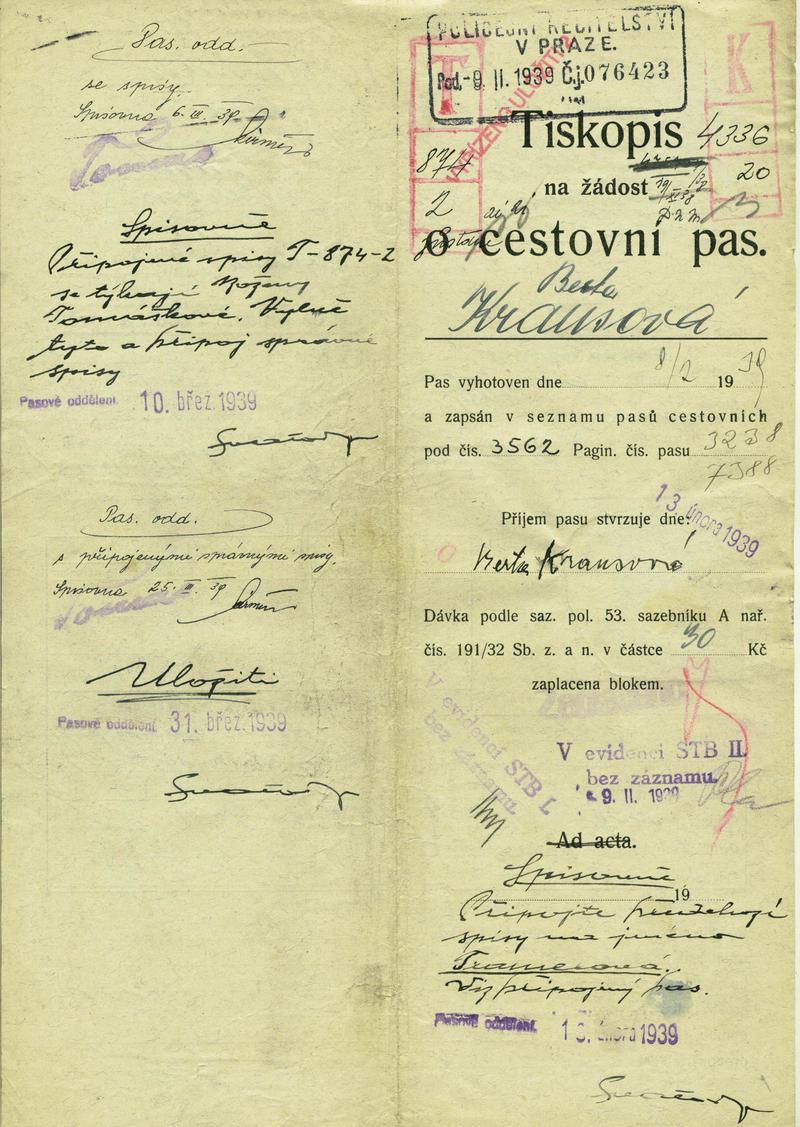 Pas. odd.
se spisy.
Spisovna 6. III. 39
Spisovně
Připojené spisy T-874-2
se týkají Boženy
Tomáškové. Vylně
tyto a připoj správné
spisy
Pasové oddělení. 10. břez. 1939
Pas. odd.
s připojenými správnými spisy.
Spisovna 25. III. 39
Uložiti
Pasové oddělení. 31. břez. 1939
POLICEJNÍ ŘEDITELSTVÍ
V PRAZE.
Pod. -9. II. 1939 Čj. 076423
T K
VYŘÍZENO ULOŽIT
874 2
4336
20
Tiskopis
na žádost
o cestovní pas.
Berta
Krausová
Pas vyhotoven dne 8/2 1939
a zapsán v seznamu pasů cestovních
pod čís. 3562 Pagin. čís. pasu 3238
7388
Příjem pasu stvrzuje dne: 13. února 1939
Berta Krausová
Dávka podle saz. pol. 53. sazebníku A nař.
čís. 191/32 Sb. z. a n. v částce 30 Kč
zaplacena blokem.
V evidenci STB I.
bez záznamu.
V evidenci STB II.
bez záznamu.
-9. II. 1939
Ad acta.
Spisovně
19
Připojte předchozí
spisy na jméno
Tramerová.
Viz připojený pas.
Pasové oddělení. 16. února 1939